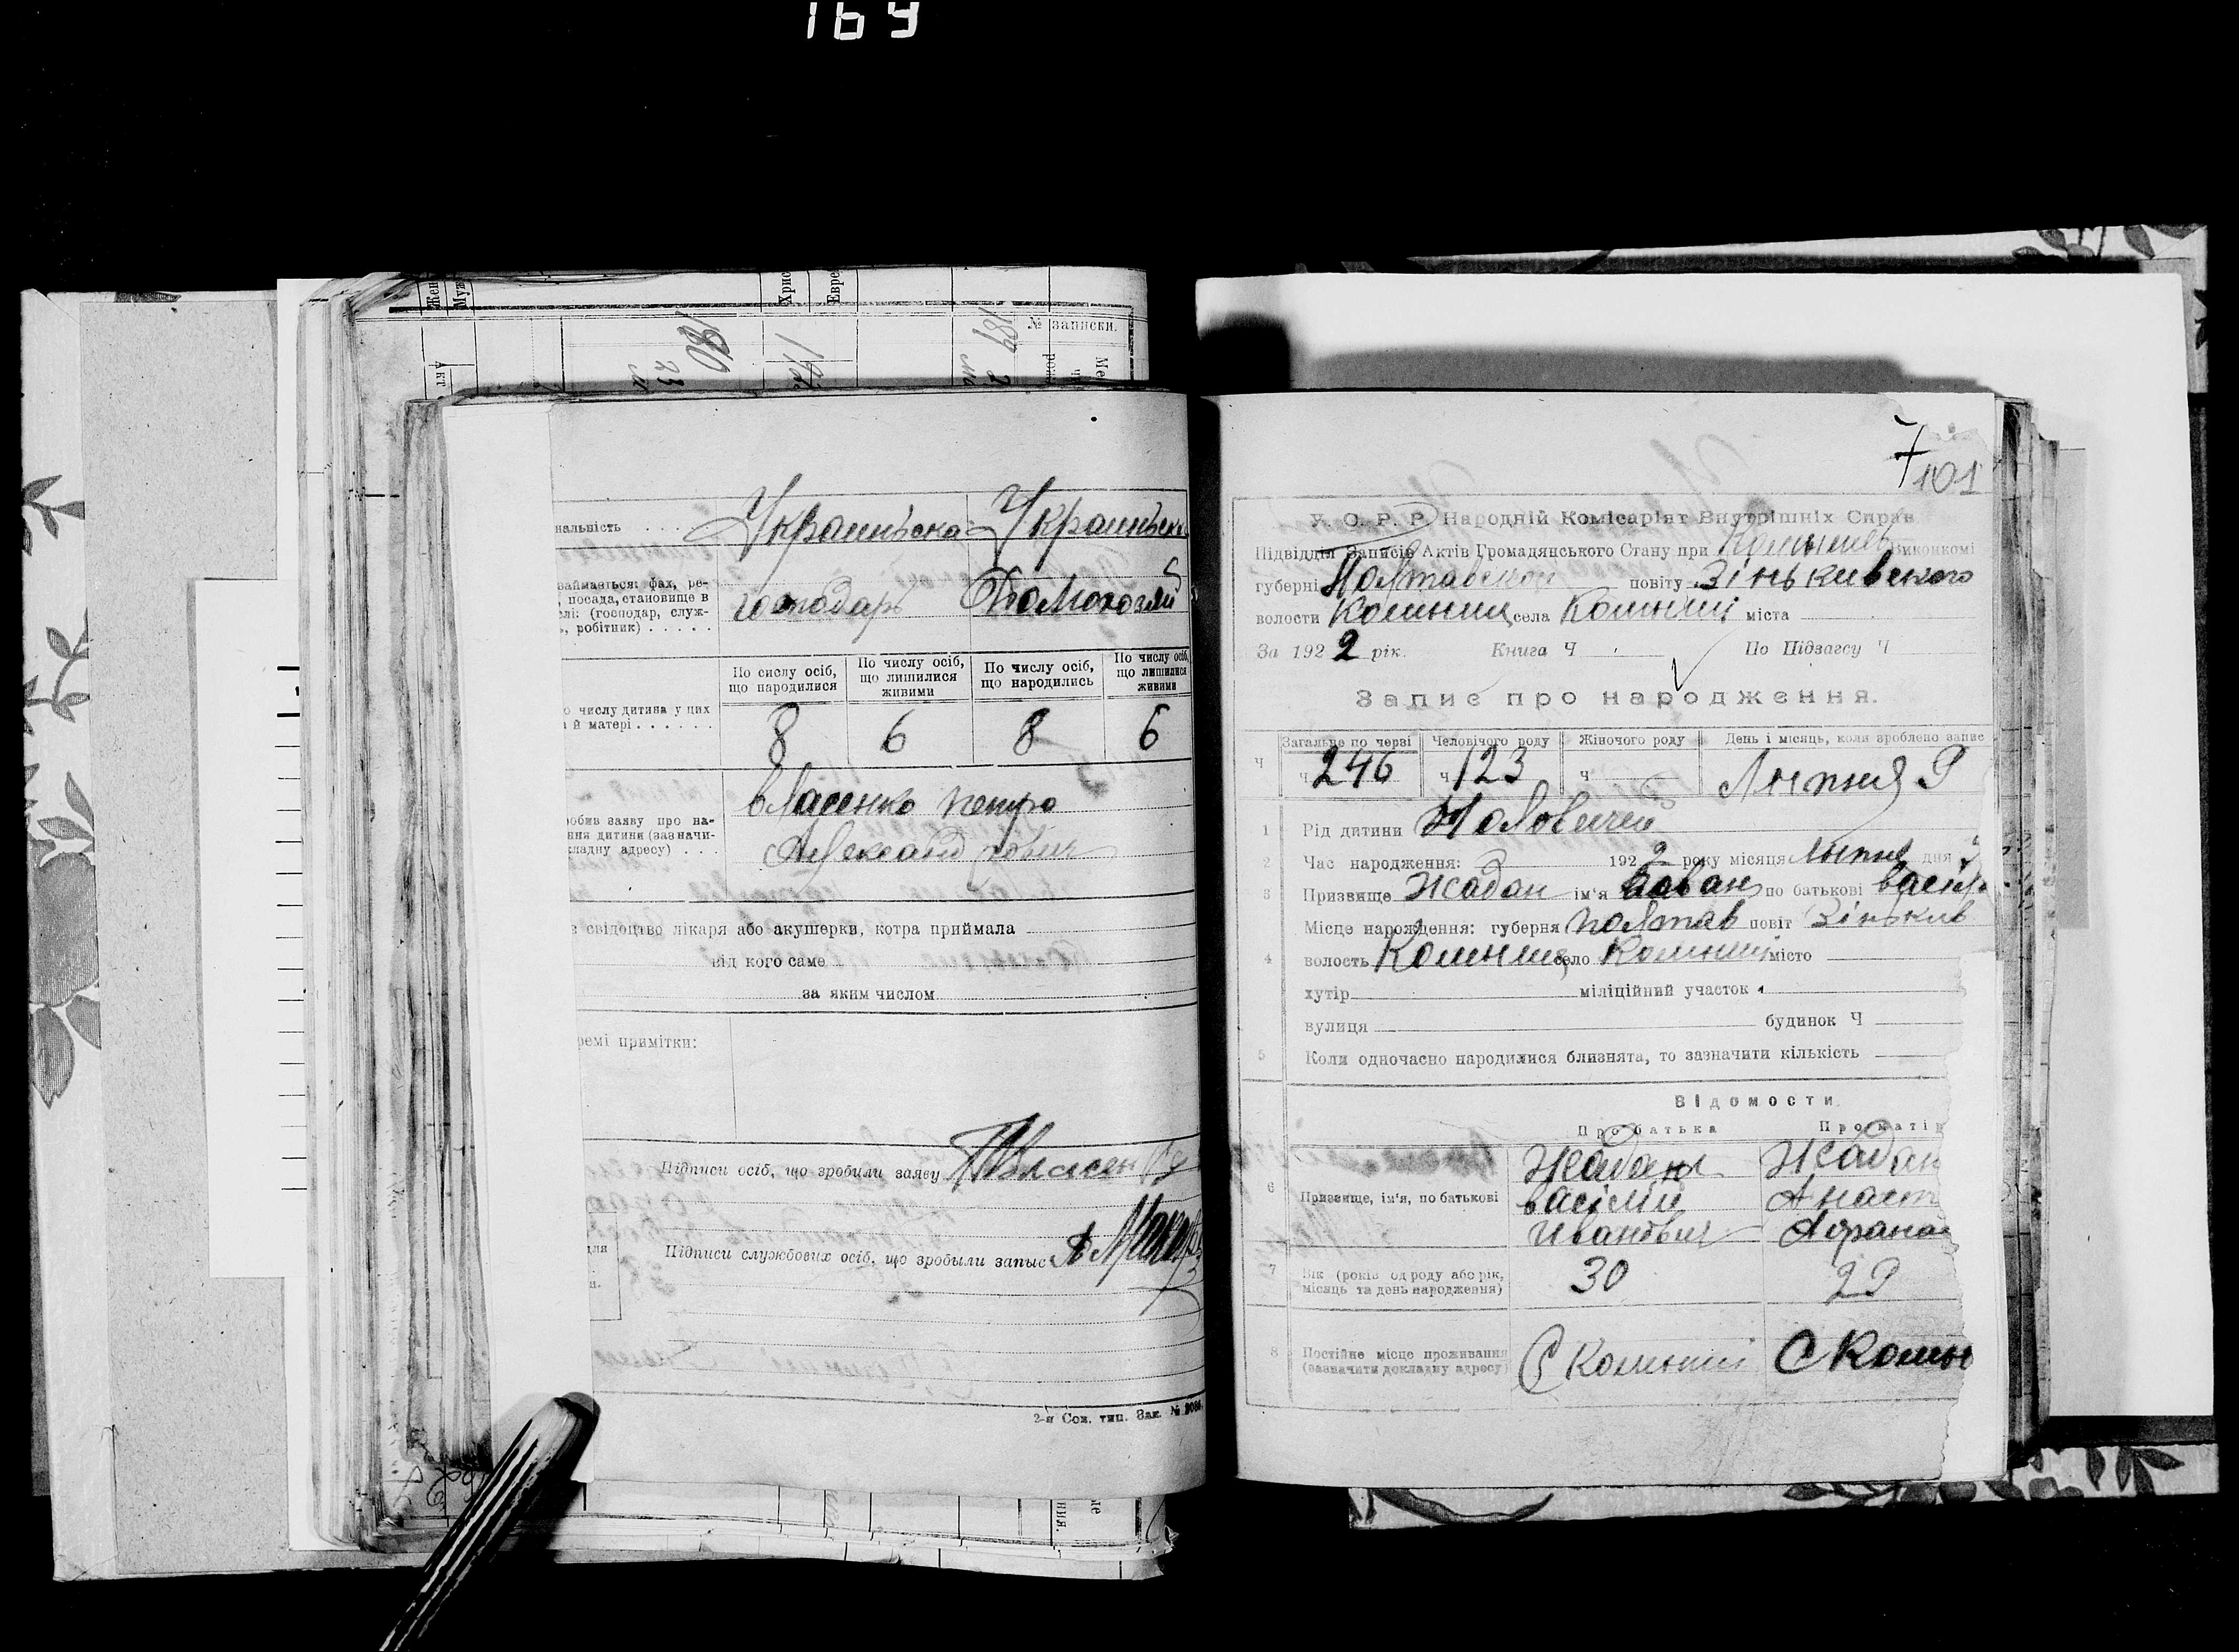 169
Жен
Муж
Хрис
Евре
№ записки.
180
189
нальність . . . . Украинъска Украинъска
займається: фах, ре-
, посада, становище в
слі: (господар, служ-
ь, робітник) . . . . .
господарь Домохозяй
По сислу осіб, що народилися
По числу осіб, що лишилися живими
По числу осіб, що народились
По числу осіб, що лишилися живими
о числу дитина у цих
і й матері . . . . . .
8 6 8 6
власенко петро
Александрович
обив заяву про на-
ння дитини (зазначи-
кладну адресу) . . .
в свідоцтво лікаря або акушерки, котра приймала
від кого саме
за яким числом
ремі примітки:
Підписи осіб, що зробили заяву
Підписи службових осіб, що зробыли запыс
для
2-я Сов. тип. Зак. №
7
101
У. О. Р. Р. Народній Комісаріят Внутрішніх Справ
Підвідділ Записів Актів Громадянського Стану при Комишев Виконкомі
губерні Полтавской повіту Зінькивского
волости Комиши села Комиши міста
За 192 2 рік. Книга Ч По Підзагсу Ч
Запис про народження.
Загальне по черзі Человічого роду Жіночого роду День і місяць, коли зроблено запис
Ч ч 246 ч 123 ч Липня 9
1 Рід дитини Чоловичий
2 Час народження: 192 2 року місяця липня дня 3
3 Призвище Жадан ім'я Иван по батькові васіль
Місце народження: губерня полтав повіт Зінькив
4 волость Комиши село Комиши місто
хутір міліційний участок
вулиця будинок Ч
5 Коли одночасно народилися близнята, то зазначити кількість
Відомости
Про батька Про матір
6 Призвище, ім'я, по батькові
Жадан Жадан
василий Анаст
Иванович Афанас
7 Вік (років од роду або рік,
місяць та день народження)
30 29
8 Постійне місце проживання
(зазначити докладну адресу)
С Комиши С Комы